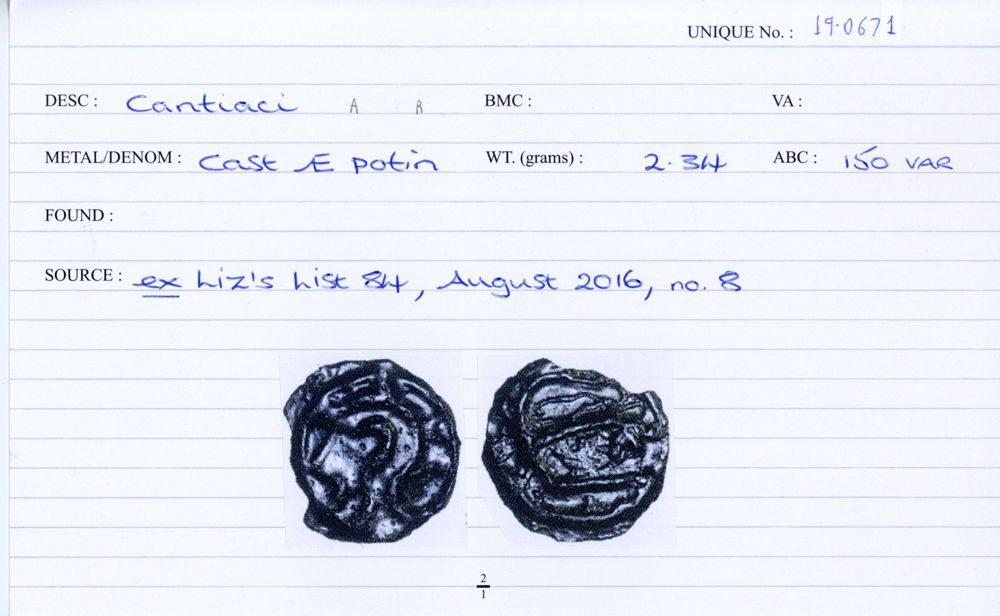 UNIQUE No. : 19.0671
DESC : Cantiaci A R BMC : VA :
METAL/DENOM : Cast Æ potin WT. (grams) : 2.34 ABC : 150 VAR
FOUND :
SOURCE : ex Liz's List 84, August 2016, no. 8
2
1